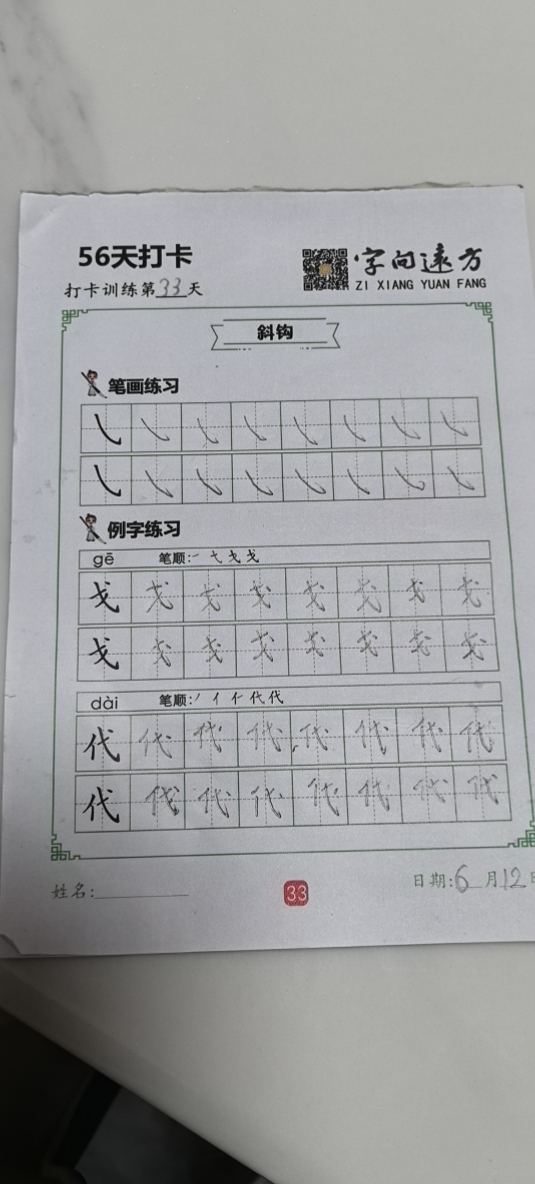 56天打卡
字向远方
打卡训练第33天
ZI XIANG YUAN FANG
斜钩
笔画练习
㇂ ㇂ ㇂ ㇂ ㇂ ㇂ ㇂ ㇂
㇂ ㇂ ㇂ ㇂ ㇂ ㇂ ㇂ ㇂
例字练习
gē 笔顺: 一 弋 戈 戈
戈 戈 戈 戈 戈 戈 戈 戈
戈 戈 戈 戈 戈 戈 戈 戈
dài 笔顺: 丿 亻 仁 代 代
代 代 代 代 代 代 代 代
代 代 代 代 代 代 代 代
姓名:
33
日期:6月12日